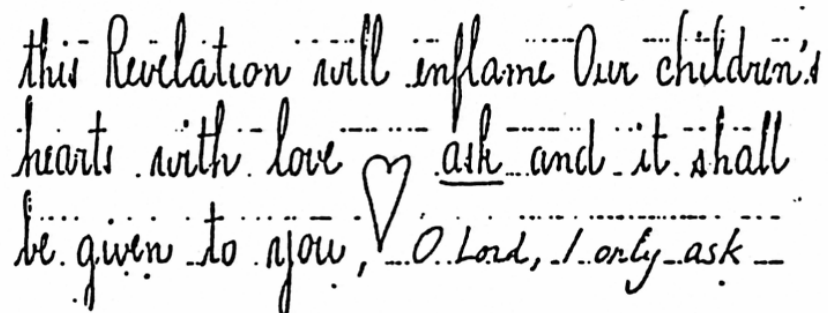 this Revelation will inflame Our children's
hearts with love ♡ ask and it shall
be given to you, O Lord, I only ask